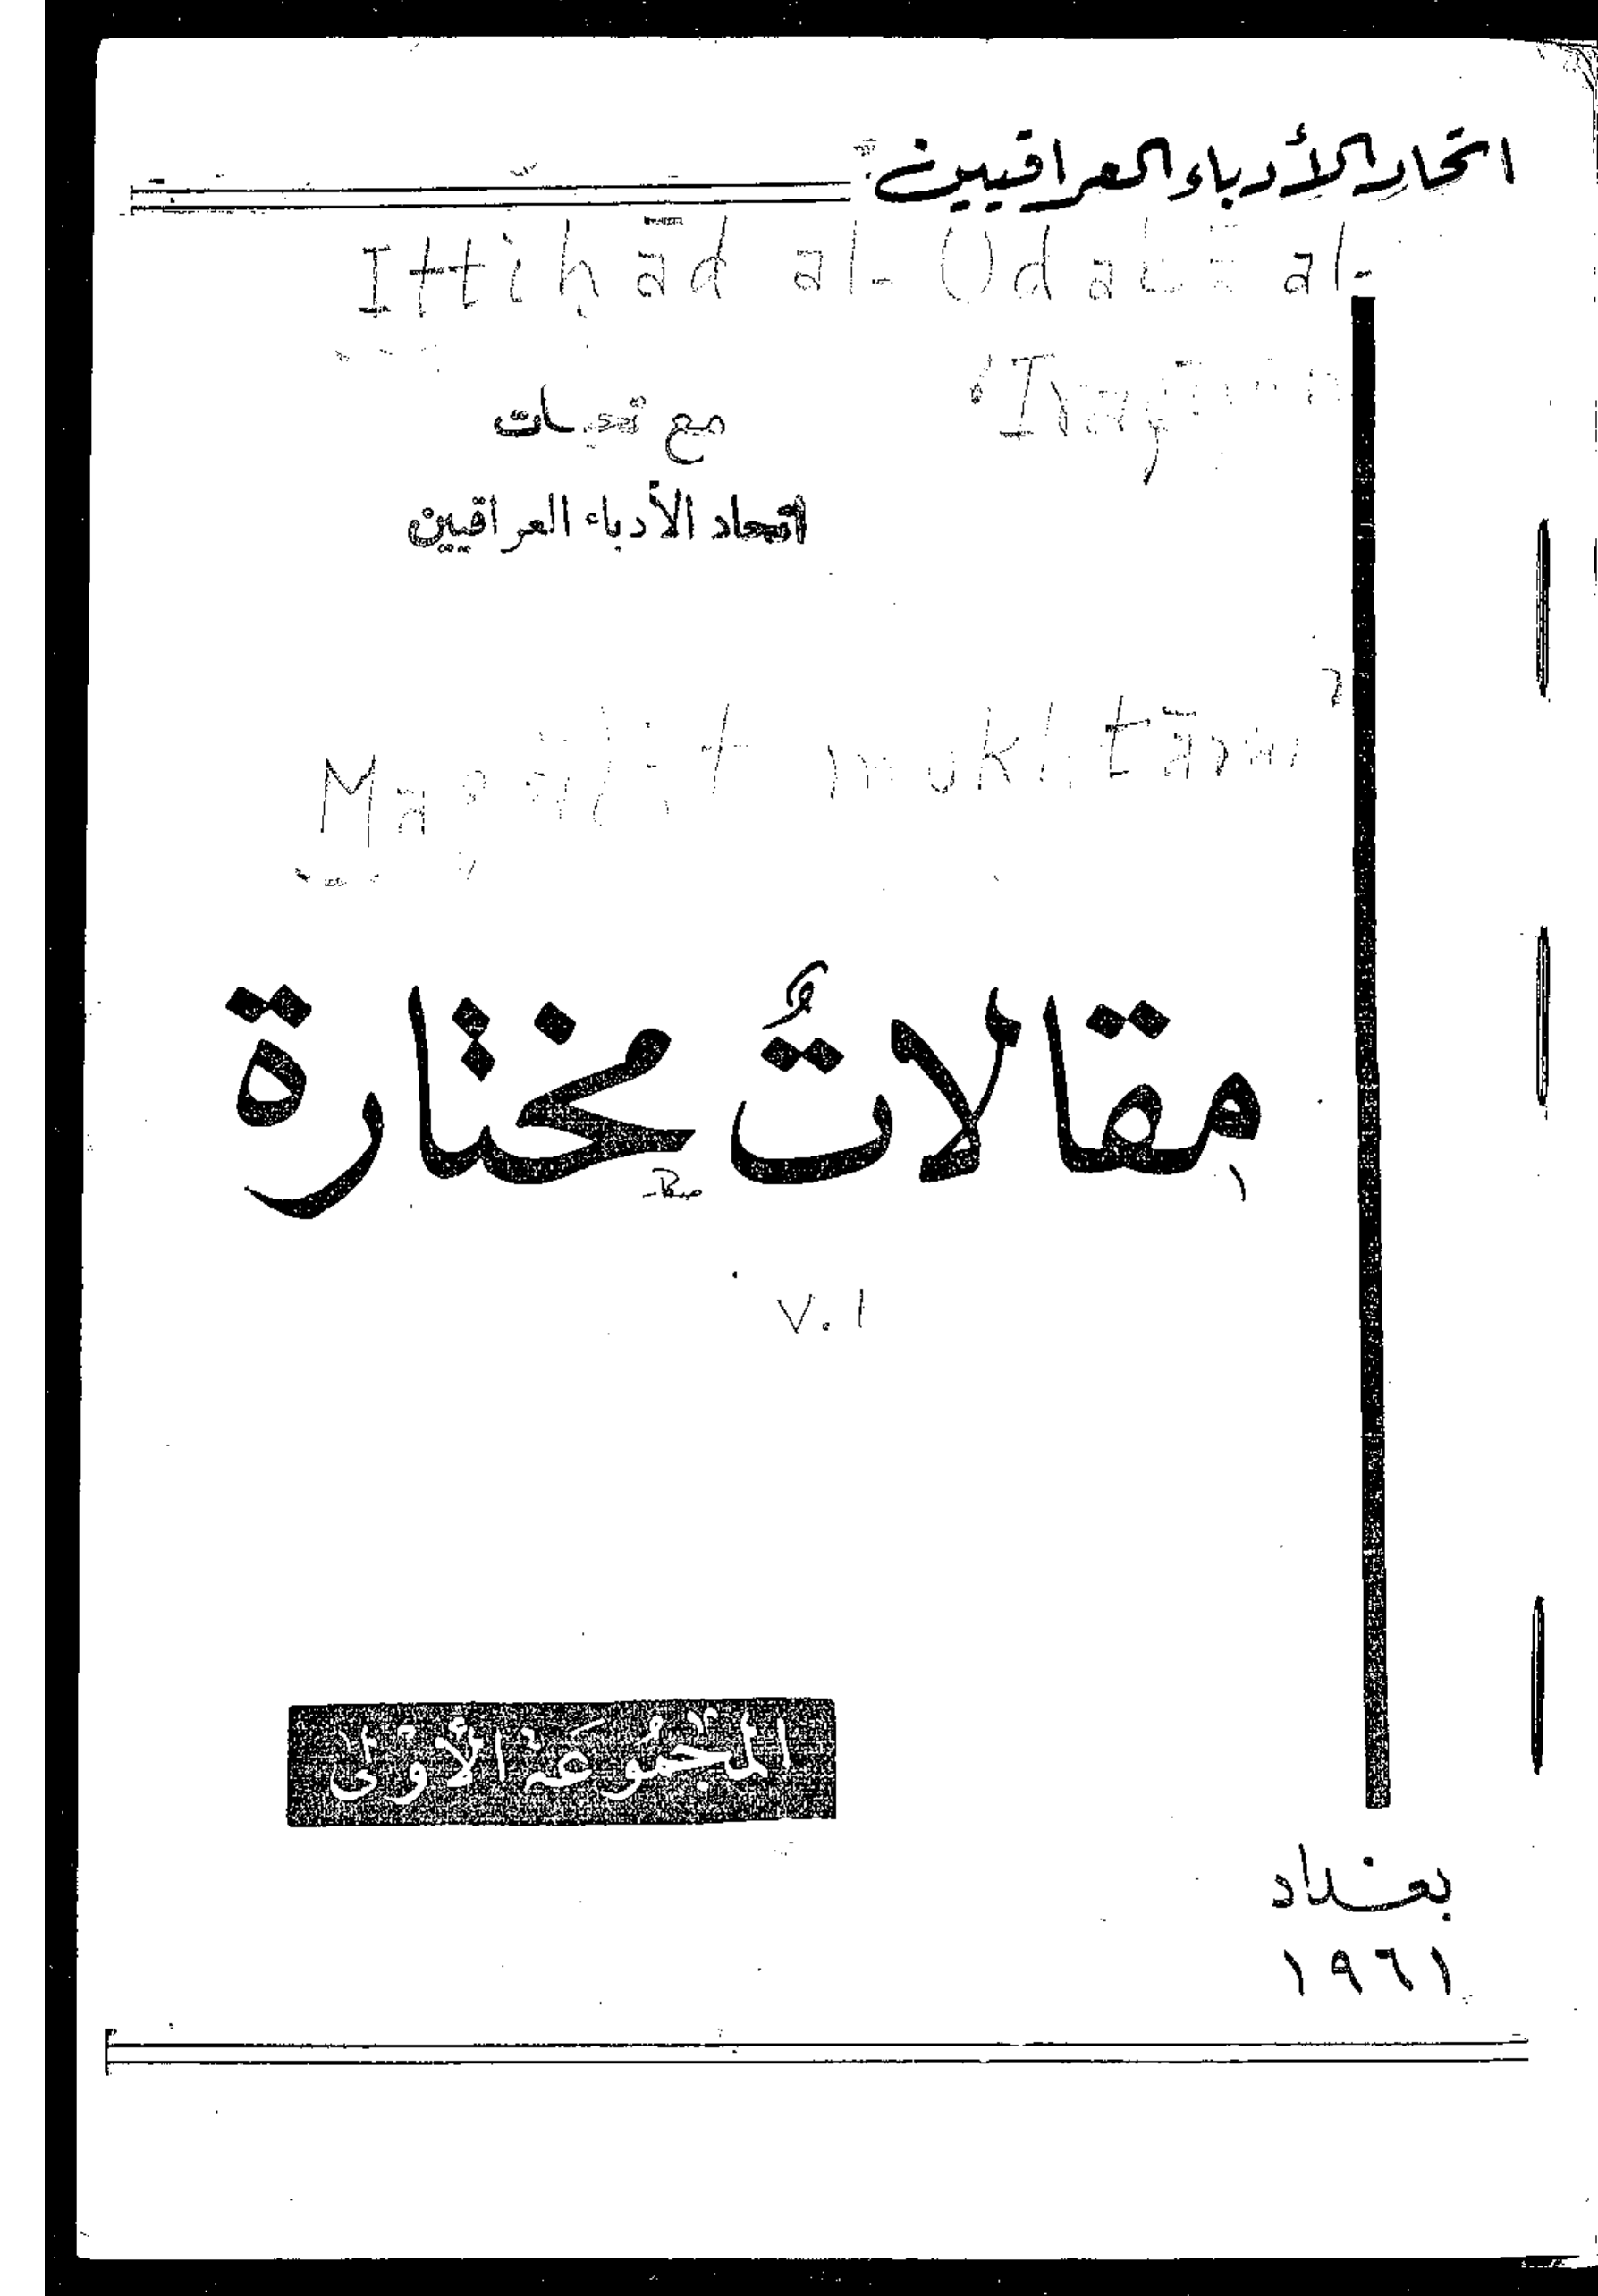 اتحاد الأدباء العراقيين
Ittiḥād al-Udabā al-
مع تحيات
اتحاد الأدباء العراقيين
mukhtārah
مقالاتٌ مختارة
v. 1
المجموعة الأولى
بغداد
١٩٦١